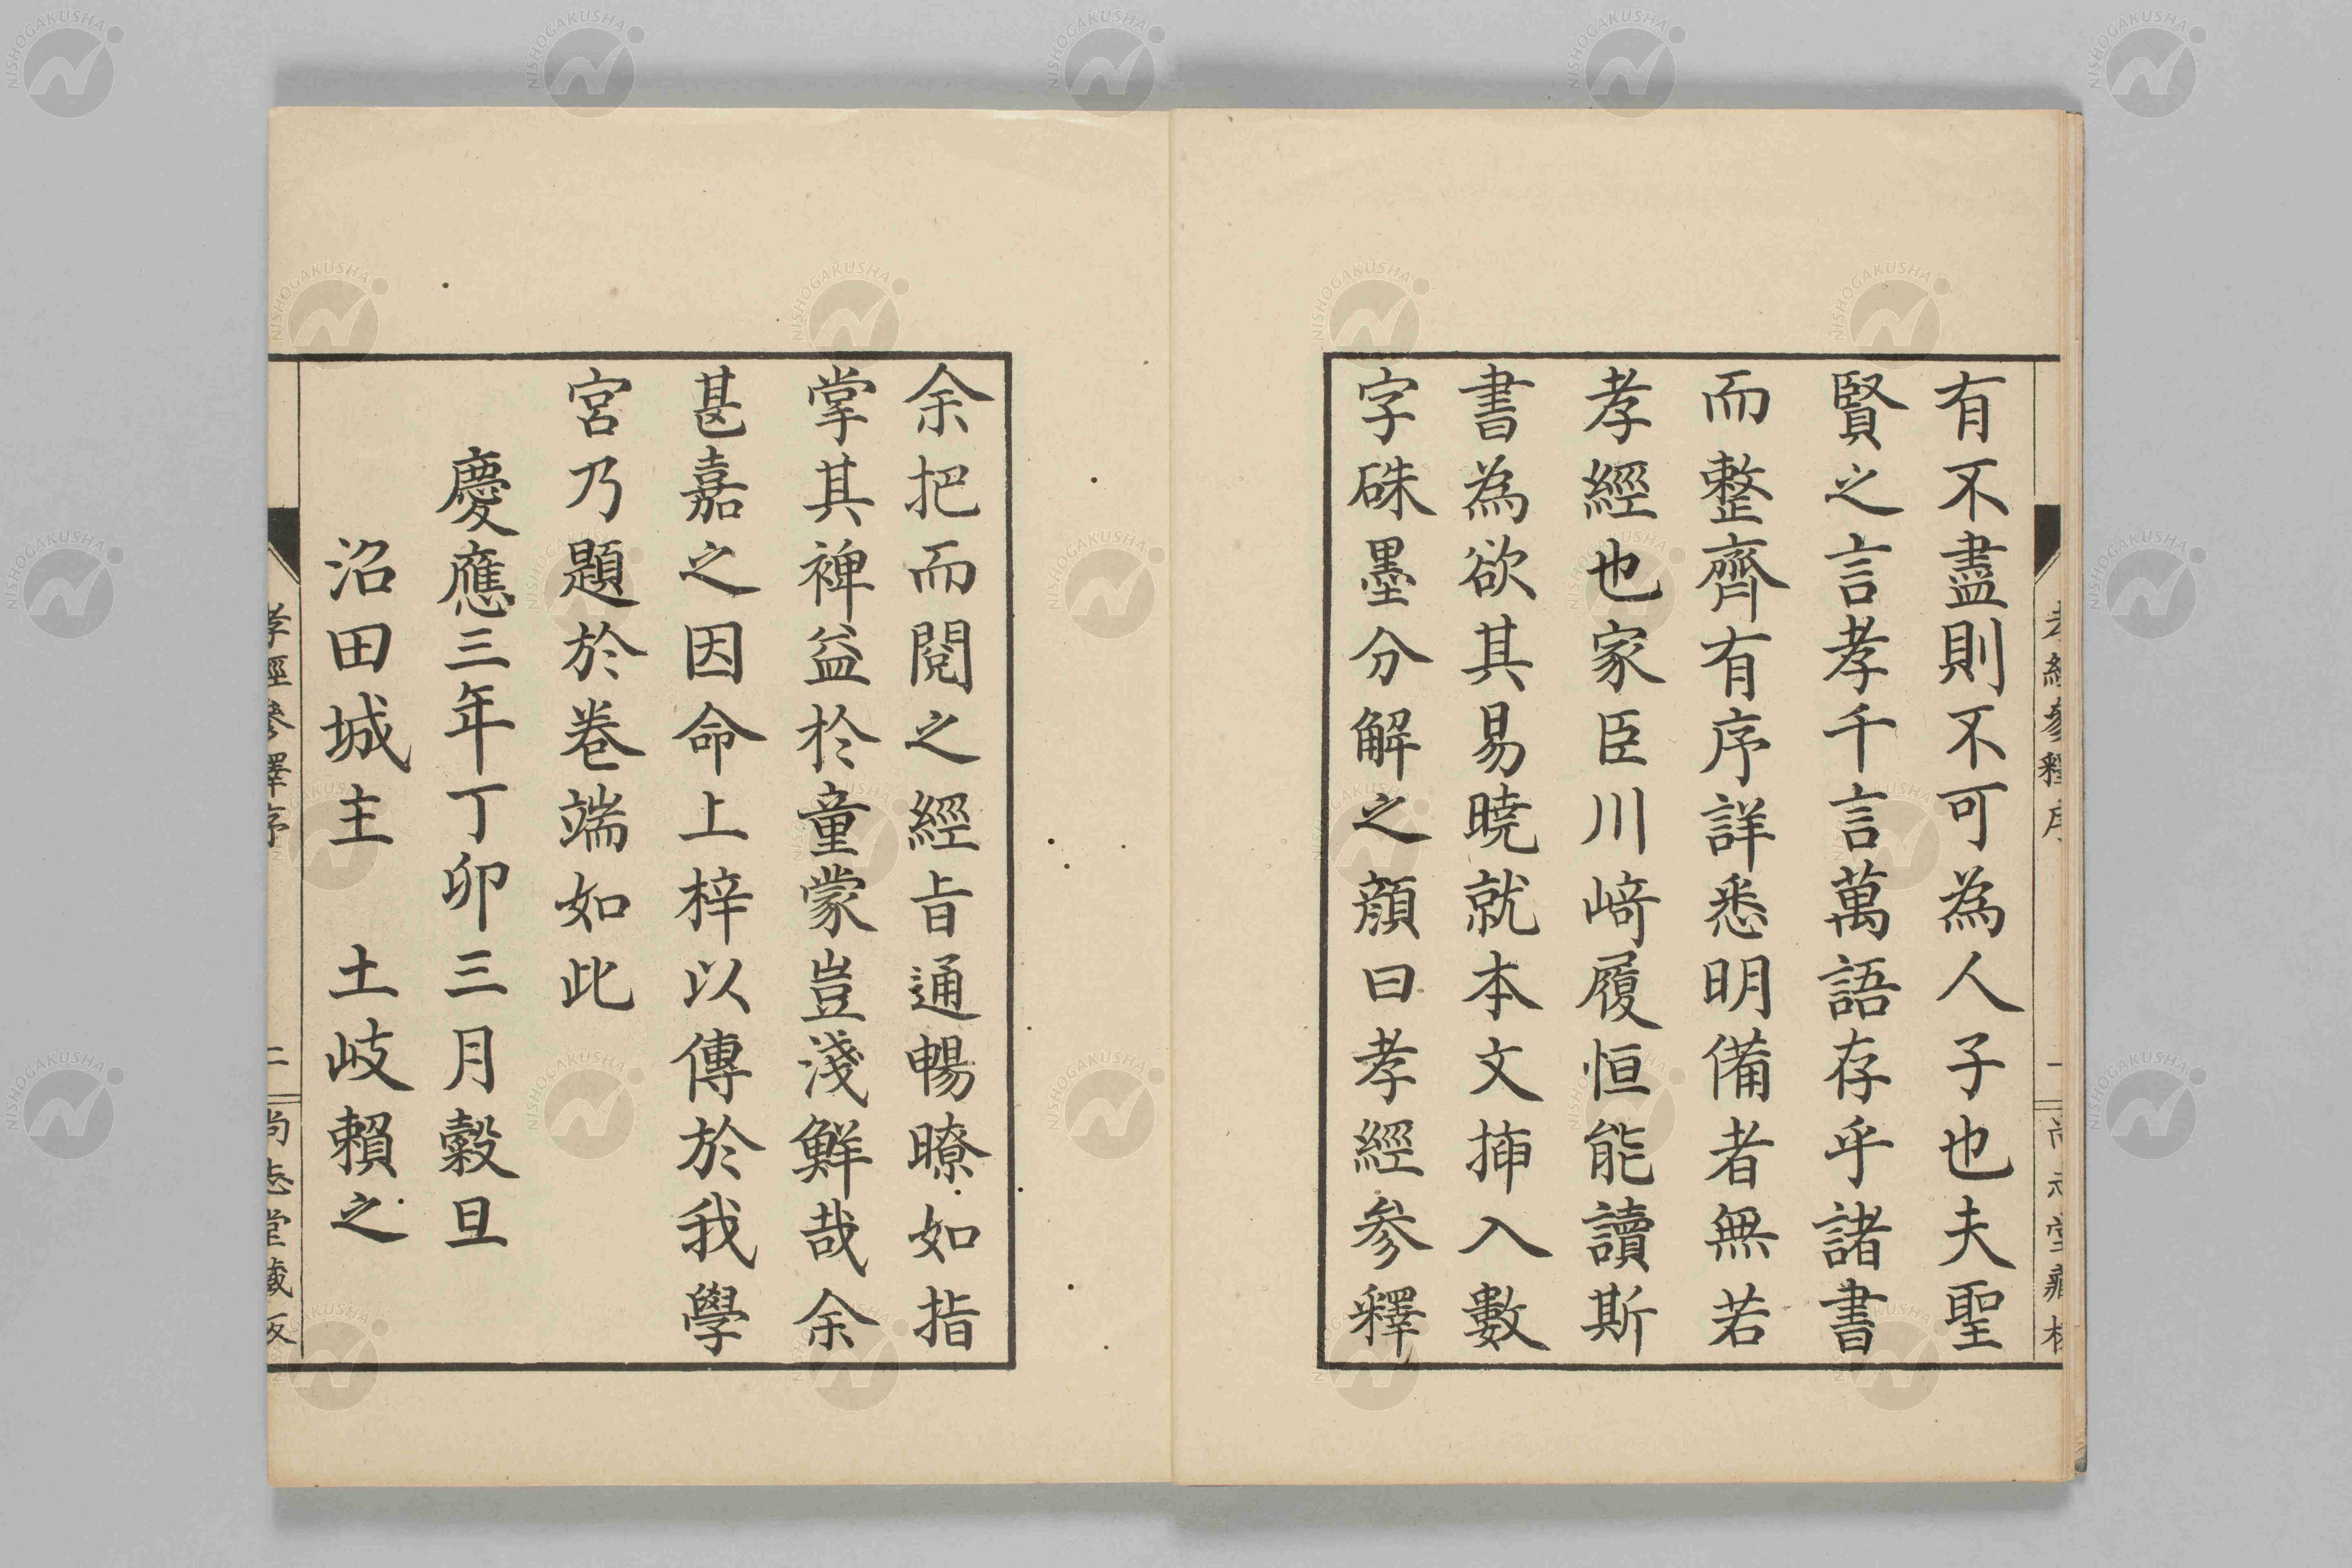 有不盡則不可為人子也夫聖
賢之言孝千言萬語存乎諸書
而整齊有序詳悉明備者無若
孝經也家臣川﨑履恒能讀斯
書為欲其易曉就本文揷入數
字硃墨分解之顏曰孝經參釋
余把而閱之經旨通暢暸如指
掌其裨益於童蒙豈淺鮮哉余
甚嘉之因命上梓以傳於我學
宮乃題於卷端如此
慶應三年丁卯三月穀旦
沼田城主 土岐賴之
孝經參釋序 二 尚志堂藏板
NISHOGAKUSHA